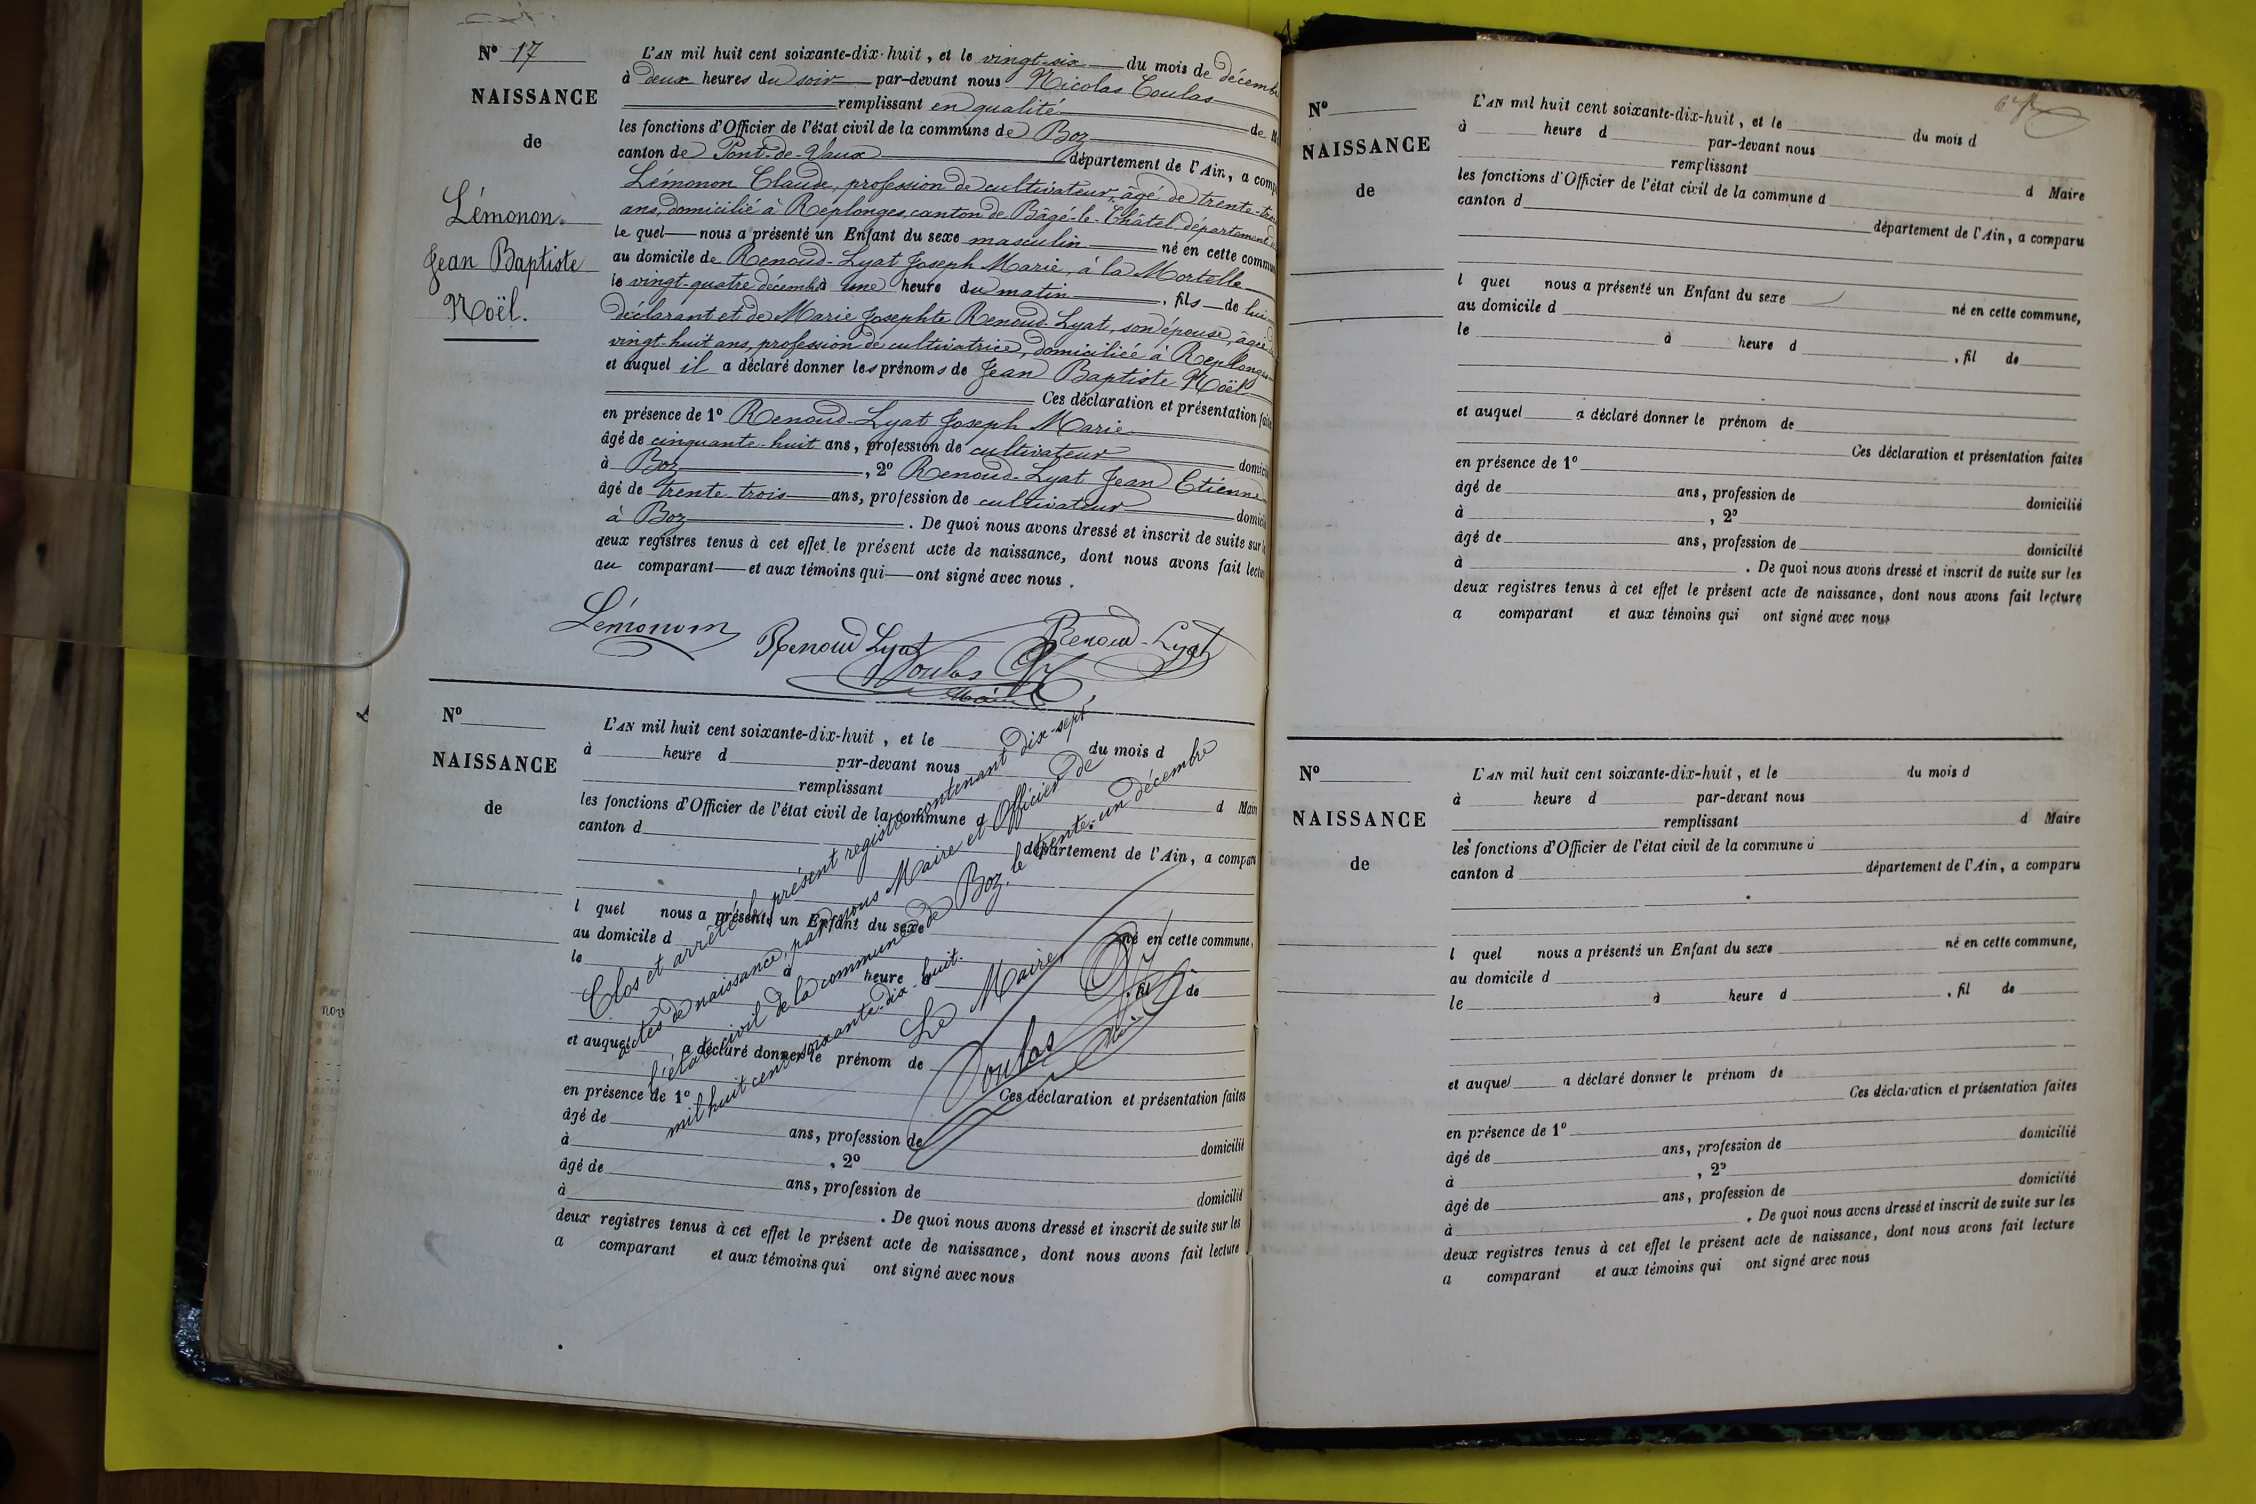 Nº 17
NAISSANCE
de
Lémonon
Jean Baptiste
Noël.
L'AN mil huit cent soixante-dix-huit, et le vingt-six du mois de décemb
à deux heures du soir par-devant nous Nicolas Coulas
remplissant en qualité de M
les fonctions d'Officier de l'état civil de la commune de Boz
canton de Pont-de-Vaux département de l'Ain, a comp
Lémonon Claude, profession de cultivateur, âgé de trente-tro
ans, domicilié à Replonges, canton de Bâgé-le-Châtel, département
le quel nous a présenté un Enfant du sexe masculin né en cette commu
au domicile de Renoud-Lyat Joseph Marie, à la Mortelle
le vingt-quatre décembre à une heure du matin, fils de lui
déclarant et de Marie Josephte Renoud-Lyat, son épouse, âgée
vingt-huit ans, profession de cultivatrice, domiciliée à Replonges
et auquel il a déclaré donner les prénoms de Jean Baptiste Noël
Ces déclaration et présentation faites
en présence de 1º Renoud-Lyat Joseph Marie
âgé de cinquante-huit ans, profession de cultivateur domici
à Boz, 2º Renoud-Lyat Jean Etienne
âgé de trente trois ans, profession de cultivateur domici
à Boz. De quoi nous avons dressé et inscrit de suite sur l
deux registres tenus à cet effet le présent acte de naissance, dont nous avons fait lectu
au comparant et aux témoins qui ont signé avec nous.
Lémonon Renoud Lyat Renoud-Lyat
Coulas
Maire
Nº
NAISSANCE
de
L'AN mil huit cent soixante-dix-huit, et le du mois d
à heure d par-devant nous
remplissant d Maire
les fonctions d'Officier de l'état civil de la commune d
canton d département de l'Ain, a comparu
l quel nous a présenté un Enfant du sexe né en cette commune,
au domicile d
le à heure d, fil de
et auquel a déclaré donner le prénom de
Ces déclaration et présentation faites
en présence de 1º
âgé de ans, profession de domicilié
à, 2º
âgé de ans, profession de domicilié
à. De quoi nous avons dressé et inscrit de suite sur les
deux registres tenus à cet effet le présent acte de naissance, dont nous avons fait lecture
a comparant et aux témoins qui ont signé avec nous
Clos et arrêté le présent registre contenant dix-sept
actes de naissance, par nous Maire et Officier de
l'état civil de la commune de Boz, le trente-un décembre
mil huit cent soixante-dix-huit.
Le Maire,
Coulas
Nº
NAISSANCE
de
L'AN mil huit cent soixante-dix-huit, et le du mois d
à heure d par-devant nous
remplissant d Maire
les fonctions d'Officier de l'état civil de la commune d
canton d département de l'Ain, a comparu
l quel nous a présenté un Enfant du sexe né en cette commune,
au domicile d
le à heure d, fil de
et auquel a déclaré donner le prénom de
Ces déclaration et présentation faites
en présence de 1º
âgé de ans, profession de domicilié
à, 2º
âgé de ans, profession de domicilié
à. De quoi nous avons dressé et inscrit de suite sur les
deux registres tenus à cet effet le présent acte de naissance, dont nous avons fait lecture
a comparant et aux témoins qui ont signé avec nous
Nº
NAISSANCE
de
L'AN mil huit cent soixante-dix-huit, et le du mois d
à heure d par-devant nous
remplissant d Maire
les fonctions d'Officier de l'état civil de la commune d
canton d département de l'Ain, a comparu
l quel nous a présenté un Enfant du sexe né en cette commune,
au domicile d
le à heure d, fil de
et auquel a déclaré donner le prénom de
Ces déclaration et présentation faites
en présence de 1º
âgé de ans, profession de domicilié
à, 2º
âgé de ans, profession de domicilié
à. De quoi nous avons dressé et inscrit de suite sur les
deux registres tenus à cet effet le présent acte de naissance, dont nous avons fait lecture
a comparant et aux témoins qui ont signé avec nous